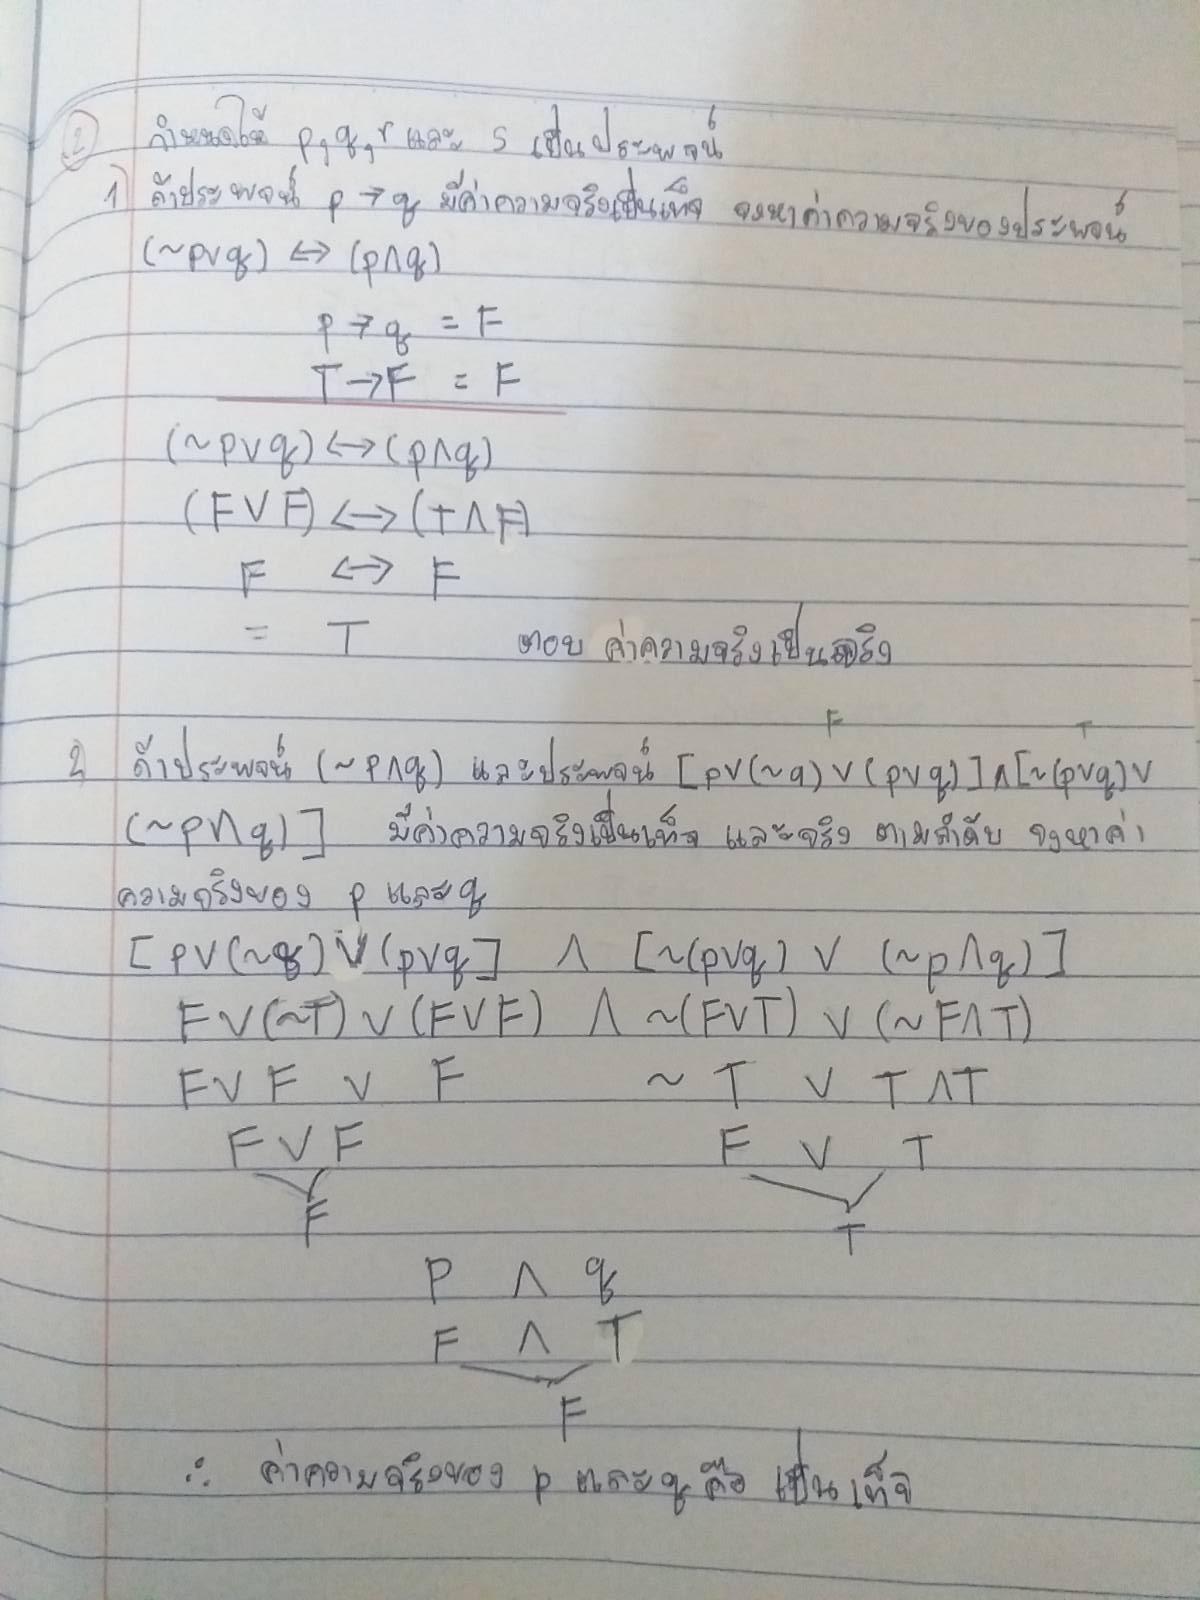 2 กำหนดให้ p, q, r และ s เป็นประพจน์
1) ถ้าประพจน์ p → q มีค่าความจริงเป็นเท็จ จงหาค่าความจริงของประพจน์
(~p∨q) ↔ (p∧q)
p → q = F
T → F = F
(~p∨q) ↔ (p∧q)
(F∨F) ↔ (T∧F)
F ↔ F
= T ตอบ ค่าความจริงเป็นจริง
F T
2) ถ้าประพจน์ (~p∧q) และประพจน์ [p∨(~q)∨(p∨q)]∧[~(p∨q)∨
(~p∧q)] มีค่าความจริงเป็นเท็จ และจริง ตามลำดับ จงหาค่า
ความจริงของ p และ q
[p∨(~q)∨(p∨q] ∧ [~(p∨q) ∨ (~p∧q)]
F∨(~T)∨(F∨F) ∧ ~(F∨T) ∨ (~F∧T)
F∨F ∨ F ~ T ∨ T∧T
F∨F F ∨ T
F T
P ∧ q
F ∧ T
F
∴ ค่าความจริงของ p และ q คือ เป็นเท็จ